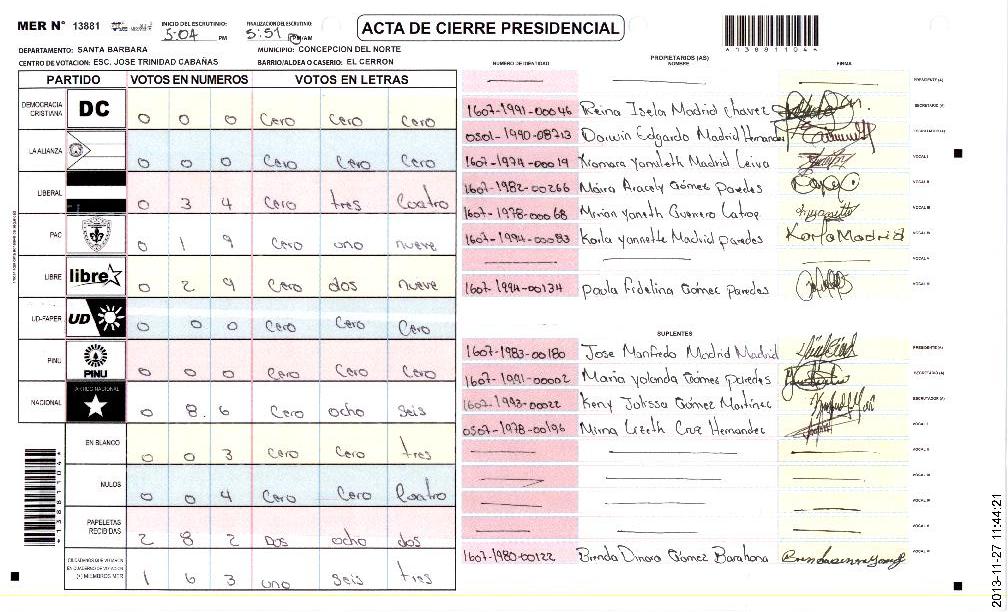 MER N° 13881 INICIO DEL ESCRUTINIO: 5:04 PM FINALIZACION DEL ESCRUTINIO: 5:51 PM/AM
ACTA DE CIERRE PRESIDENCIAL
*138811044*
DEPARTAMENTO: SANTA BARBARA MUNICIPIO: CONCEPCION DEL NORTE
CENTRO DE VOTACION: ESC. JOSE TRINIDAD CABAÑAS BARRIO/ALDEA O CASERIO: EL CERRON
PARTIDO VOTOS EN NUMEROS VOTOS EN LETRAS
DEMOCRACIA CRISTIANA DC 0 0 0 Cero Cero Cero
LA ALIANZA 0 0 0 Cero Cero Cero
LIBERAL 0 3 4 Cero tres Cuatro
PAC 0 1 9 Cero uno nueve
LIBRE libre 0 2 9 Cero dos nueve
UD-FAPER UD 0 0 0 Cero Cero Cero
PINU PINU 0 0 0 Cero Cero Cero
NACIONAL PARTIDO NACIONAL 0 8 6 Cero ocho seis
EN BLANCO 0 0 3 Cero Cero tres
NULOS 0 0 4 Cero Cero Cuatro
PAPELETAS RECIBIDAS 2 8 2 Dos ocho dos
CIUDADANOS QUE VOTARON EN CUADERNO DE VOTACION (+) MIEMBROS MER 1 6 3 uno seis tres
PROPIETARIOS (AS)
NUMERO DE IDENTIDAD NOMBRE FIRMA
PRESIDENTE (A)
1607-1991-00046 Reina Isela Madrid Chavez SECRETARIO (A)
0501-1990-08713 Darwin Edgardo Madrid Hernandez ESCRUTADOR (A)
1607-1974-00019 Xiomara Yamileth Madrid Leiva VOCAL I
1607-1982-00266 Maira Aracely Gómez Paredes VOCAL II
1607-1978-00068 Mirian Yaneth Guerrero VOCAL III
1607-1994-00083 Karla Yannette Madrid paredes Karla Madrid VOCAL IV
VOCAL V
1607-1994-00134 Paula Fidelina Gómez Paredes VOCAL VI
SUPLENTES
1607-1983-00180 Jose Manfredo Madrid Madrid PRESIDENTE (A)
1607-1991-00002 Maria Yolanda Gómez paredes SECRETARIO (A)
1607-1993-00022 Keny Julissa Gómez Martínez ESCRUTADOR (A)
0507-1978-00196 Mirna Lizeth Cruz Hernandez VOCAL I
VOCAL II
VOCAL III
VOCAL IV
VOCAL V
1607-1980-00122 Brenda Dinora Gómez Barahona VOCAL VI
2013-11-27 11:44:21